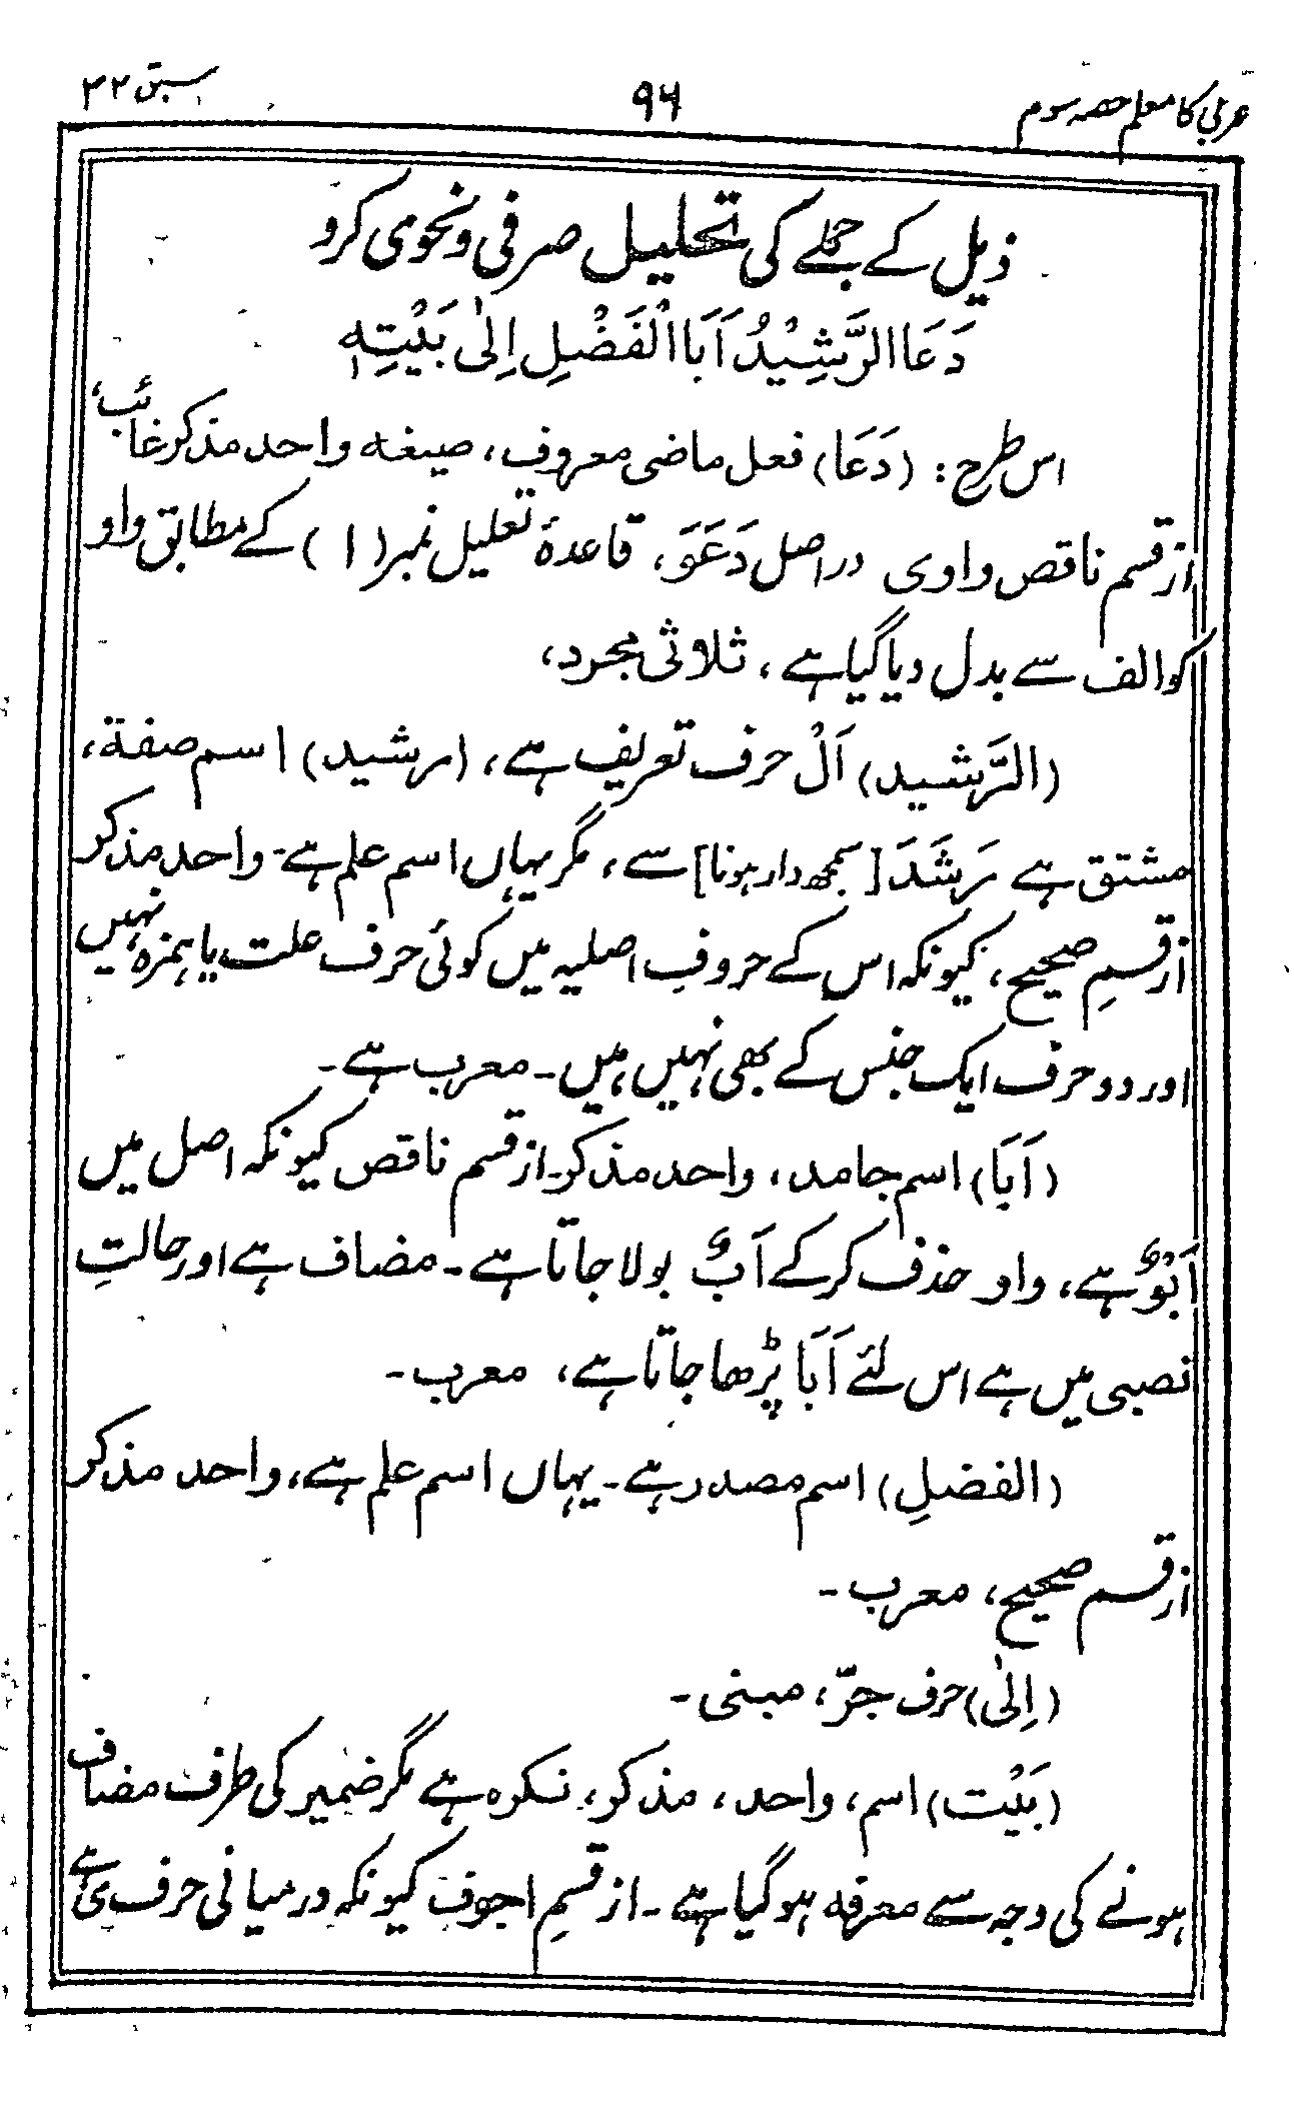 عربی کا معلم حصہ سوم ۹۶ سبق ۲۲
ذیل کے جملے کی تحلیل صرفی و نحوی کرو
دَعَا الرَّشِيْدُ اَبَا الْفَضْلِ اِلٰى بَيْتِهٖ
اس طرح: (دَعَا) فعل ماضی معروف، صیغہ واحد مذکر غائب،
از قسم ناقص واوی دراصل دَعَوَ، قاعدۂ تعلیل نمبر (۱) کے مطابق واو
کو الف سے بدل دیا گیا ہے، ثلاثی مجرد،
(الرَّشید) اَلْ حرف تعریف ہے، (رشید) اسم صفة،
مشتق ہے رَشَدَ [سمجھ دار ہونا] سے، مگر یہاں اسم علم ہے۔ واحد مذکر
از قسمِ صحیح، کیونکہ اس کے حروفِ اصلیہ میں کوئی حرف علت یا ہمزہ نہیں
اور دو حرف ایک جنس کے بھی نہیں ہیں۔ معرب ہے۔
(اَبَا) اسم جامد، واحد مذکر۔ از قسم ناقص کیونکہ اصل میں
اَبَوٌ ہے، واو حذف کر کے اَبٌ بولا جاتا ہے۔ مضاف ہے اور حالتِ
نصبی میں ہے اس لئے اَبَا پڑھا جاتا ہے، معرب۔
(الفضلِ) اسم مصدر ہے۔ یہاں اسم علم ہے، واحد مذکر
از قسم صحیح، معرب۔
(اِلیٰ) حرف جرّ، مبنی۔
(بَيْت) اسم، واحد، مذکر، نکرہ ہے مگر ضمیر کی طرف مضاف
ہونے کی وجہ سے معرفہ ہو گیا ہے۔ از قسمِ اجوف کیونکہ درمیانی حرف ی ہے